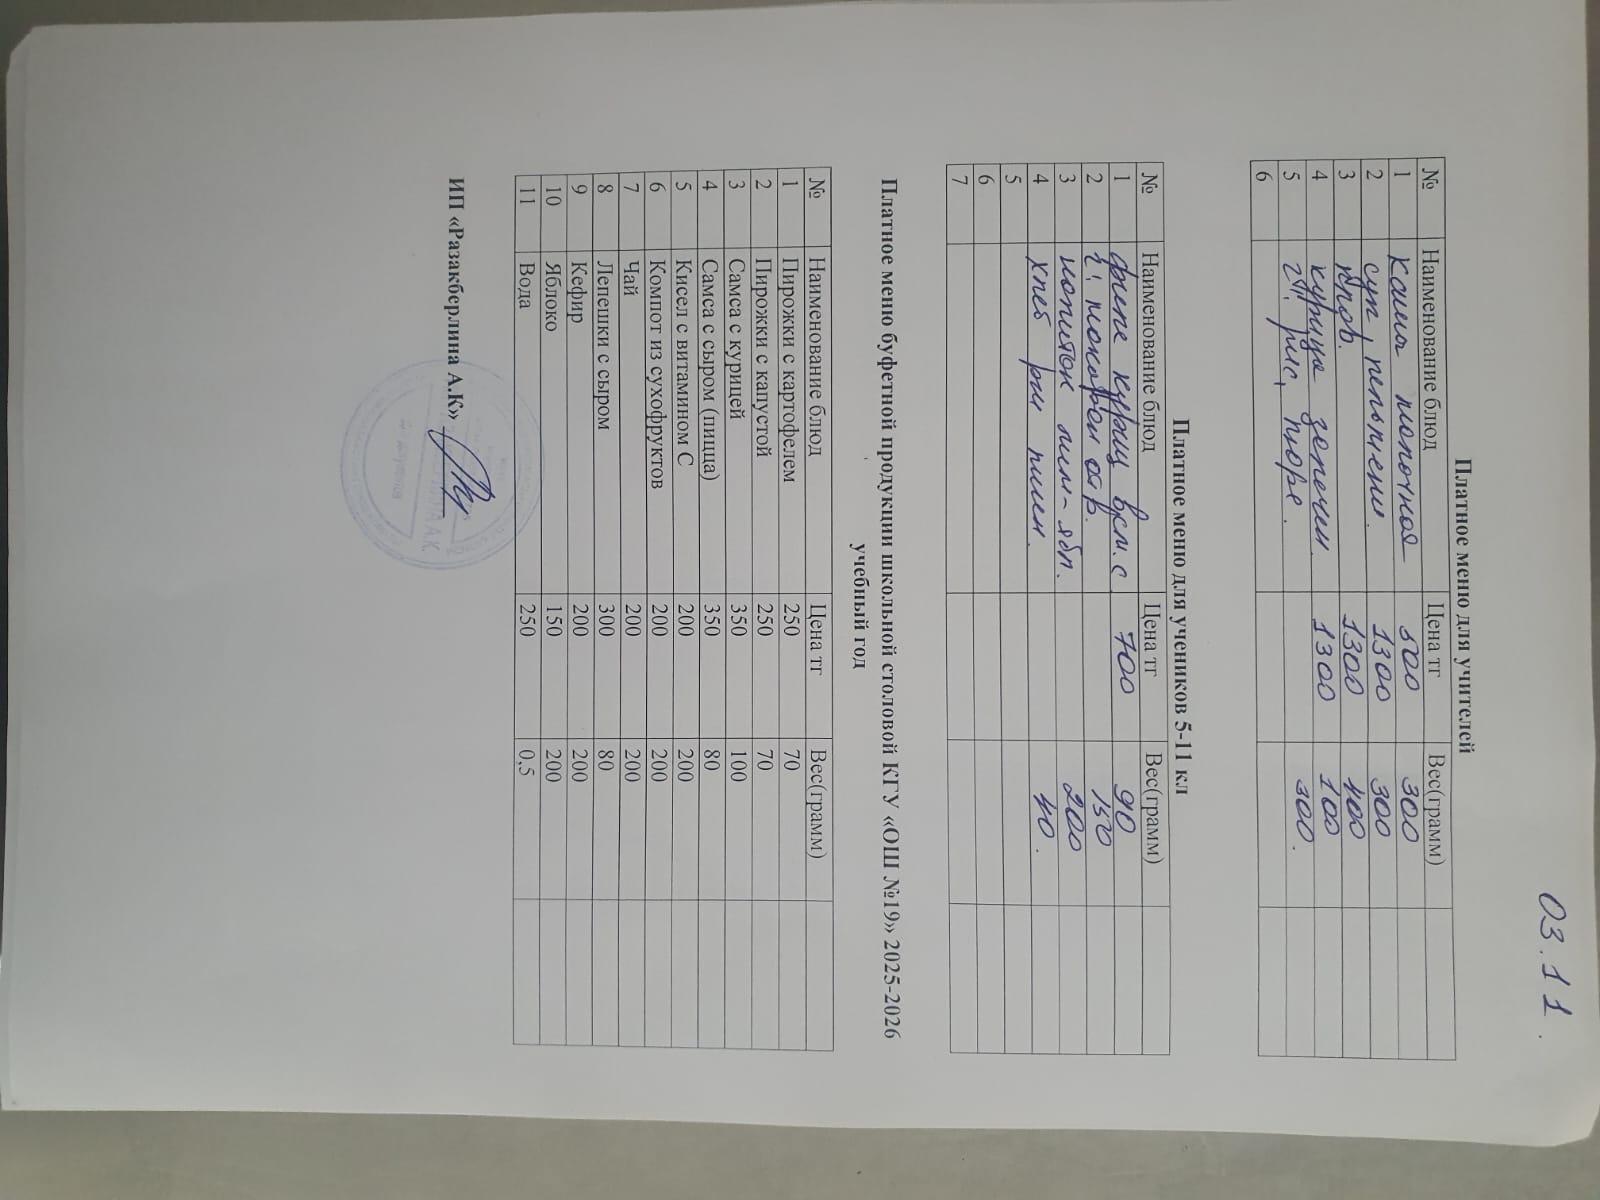 03.11.
Платное меню для учителей
№ Наименование блюд Цена тг Вес(грамм)
1 Каша молочная 500 300
2 суп пельмени. 1300 300
3 плов. 1300 400
4 курица запечен. 1300 100
5 г/г. рис, пюре. 300.
6
Платное меню для учеников 5-11 кл
№ Наименование блюд Цена тг Вес(грамм)
1 филе куриц в см. с 700 90
2 макарон отв. 150
3 напиток лим-ябл. 200
4 хлеб рж пшен. 40.
5
6
7
Платное меню буфетной продукции школьной столовой КГУ «ОШ №19» 2025-2026
учебный год
№ Наименование блюд Цена тг Вес(грамм)
1 Пирожки с картофелем 250 70
2 Пирожки с капустой 250 70
3 Самса с курицей 350 100
4 Самса с сыром (пицца) 350 80
5 Кисел с витамином С 200 200
6 Компот из сухофруктов 200 200
7 Чай 200 200
8 Лепешки с сыром 300 80
9 Кефир 200 200
10 Яблоко 150 200
11 Вода 250 0,5
ИП «Разакберлина А.К»